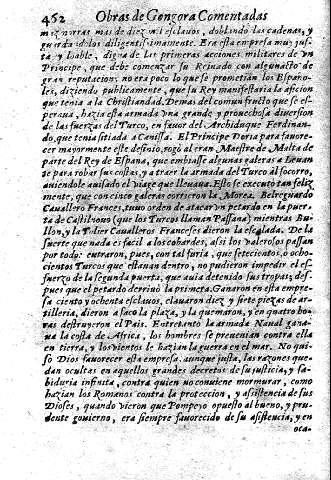 462 Obras de Gongora Comentadas
mazmorras mas de diez mil esclavos, doblando las cadenas, y
guardandolos diligentissimamente. Era esta empresa muy jus-
ta y loable, digna de las primeras acciones militares de un
Principe, que debe comenzar su Reinado con algun acto de
gran reputacion; no era poco lo que se prometian los Españo-
les, diziendo publicamente, que su Rey manifestaria la aficion
que tenia a la Christiandad. Demas del comun fructo que se es-
perava, hazia esta armada una grande y provechosa diversion
de las fuerzas del Turco, en favor del Archiduque Ferdinan-
do, que tenia sitiada a Canissa. El Principe Doria para favore-
cer mayormente este desinio, rogò al gran Maestre de Malta de
parte del Rey de España, que embiasse algunas galeras a Levan
te para robar sus costas, y a traer la armada del Turco al socorro,
aviendole avisado el viage que llevava. Esto se executò tan feliz
mente, que con cinco galeras corrieron la Morea. Belreguardo
Cavallero Frances, tuvo orden de atacar un petardo en la puer-
ta de Castilnovo (que los Turcos llaman Passava) mientras Bu-
llon, y la Tdier Cavalleros Franceses dieron la escalada. De la
suerte que nada es facil a los cobardes, assi los valerosos passan
por todo: entraron, pues, con tal furia, que setecientos, o ocho-
cientos Turcos que estavan dentro, no pudieron impedir el es-
fuerzo de la segunda puerta, que avia detenido sus tropas; des-
pues que el petardo derribò la primera. Ganaron en esta empre-
sa ciento y ochenta esclavos, clavaron diez y siete piezas de ar-
tilleria, dieron a saco la plaza, y la quemaron, y en quatro ho-
ras destruyeron el Pais. Entretanto la armada Naval gana-
va la costa de Africa, los hombres se prevenian contra ella
en tierra, y los vientos le hazian la guerra en el mar. No qui-
so Dios favorecer esta empresa, aunque justa, las razones que-
dan ocultas en aquellos grandes decretos de su justicia, y sa-
biduria infinita, contra quien no conviene mormurar, como
hazian los Romanos contra la proteccion, y assistencia de sus
Dioses, quando vieron que Pompeyo opuesto al bueno, y pru-
dente govierno, era siempre favorecido de su asistencia, y en
oca-